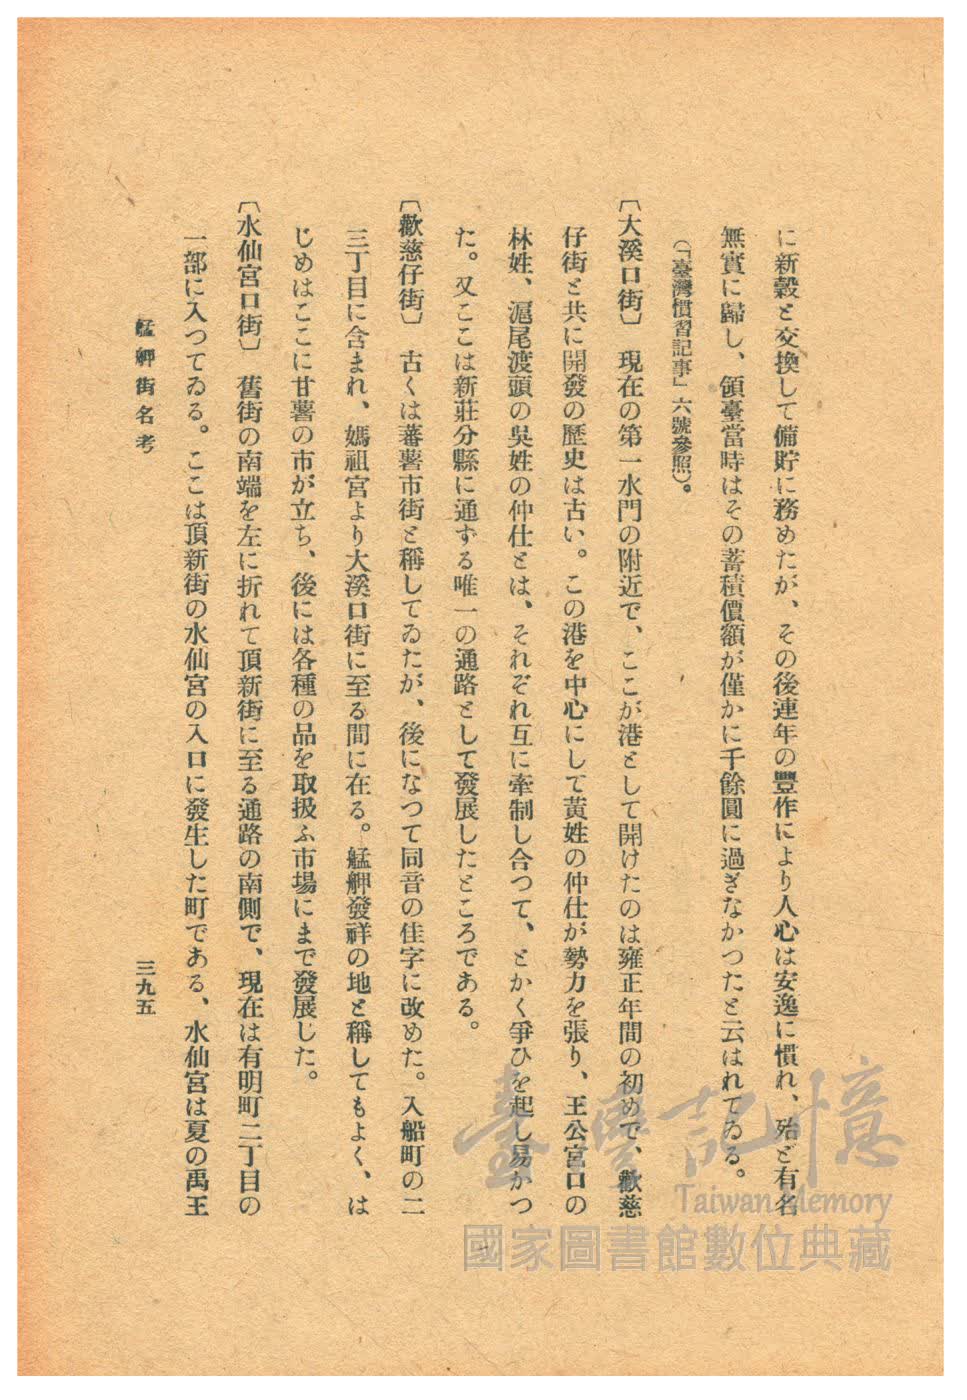 に新穀と交換して備貯に務めたが、その後連年の豐作により人心は安逸に慣れ、殆ど有名
無實に歸し、領臺當時はその蓄積價額が僅かに千餘圓に過ぎなかつたと云はれてゐる。
(「臺灣慣習記事」六號參照)。
〔大溪口街〕 現在の第一水門の附近で、ここが港として開けたのは雍正年間の初めで、歡慈
仔街と共に開發の歷史は古い。この港を中心にして黃姓の仲仕が勢力を張り、王公宮口の
林姓、滬尾渡頭の吳姓の仲仕とは、それぞれ互に牽制し合つて、とかく爭ひを起し易かつ
た。又ここは新莊分縣に通ずる唯一の通路として發展したところである。
〔歡慈仔街〕 古くは蕃薯市街と稱してゐたが、後になつて同音の佳字に改めた。入船町の二
三丁目に含まれ、媽祖宮より大溪口街に至る間に在る。艋舺發祥の地と稱してもよく、は
じめはここに甘薯の市が立ち、後には各種の品を取扱ふ市場にまで發展した。
〔水仙宮口街〕 舊街の南端を左に折れて頂新街に至る通路の南側で、現在は有明町二丁目の
一部に入つてゐる。ここは頂新街の水仙宮の入口に發生した町である、水仙宮は夏の禹王
艋舺街名考
三九五
臺灣記憶
Taiwan Memory
國家圖書館數位典藏